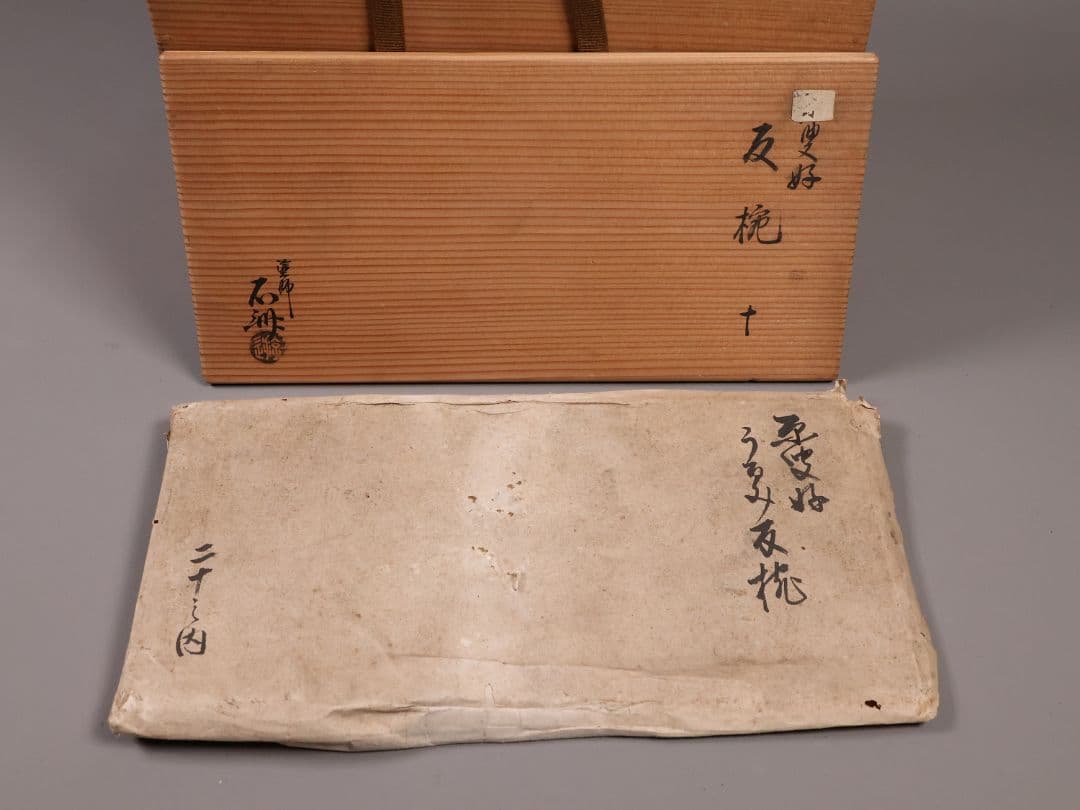 叟好
反椀
十
塗師
石州
原叟好
うるみ反椀
二十之内